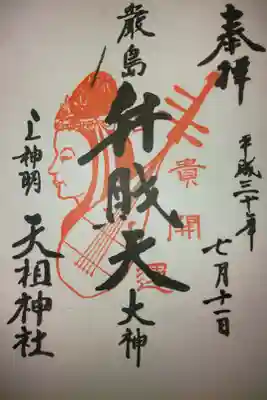 奉拝
平成三十年
七月十一日
厳島
弁財天
大神
貴
開
運
上神明
天祖神社